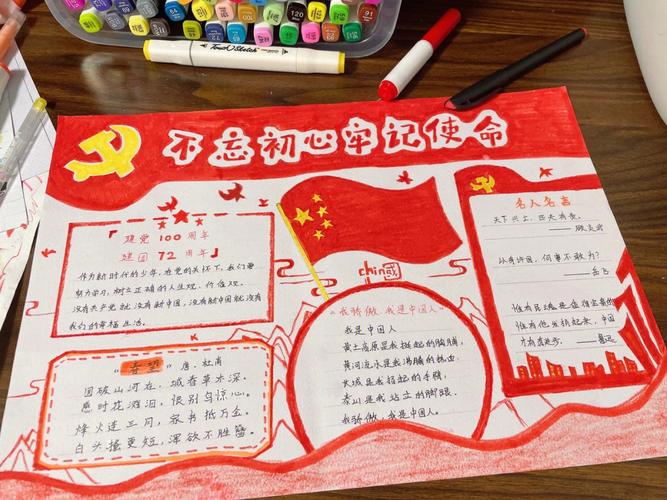 不忘初心牢记使命
「建党100周年
建国72周年」
作为新时代的少年,在党的关怀下,我们要
努力学习,树立正确的人生观、价值观。
没有共产党就没有新中国,没有新中国就没有
我们的幸福生活。
《春望》 唐·杜甫
国破山河在,城春草木深。
感时花溅泪,恨别鸟惊心。
烽火连三月,家书抵万金。
白头搔更短,浑欲不胜簪。
china
"我骄傲,我是中国人"
我是中国人
黄土高原是我挺起的胸脯,
黄河流水是我沸腾的热血,
长城是我扬起的手臂,
泰山是我站立的脚跟.
我骄傲,我是中国人。
名人名言
天下兴亡,匹夫有责。
——顾炎武
以身许国,何事不敢为?
——岳飞
唯有民魂是值得宝贵的,
唯有他发扬起来,中国
才有真进步。——鲁迅
Touch Sketch
120
91